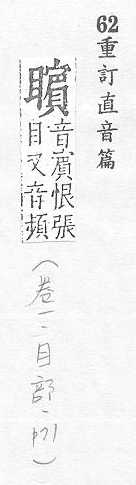 62重訂直音篇
矉
音賔恨張
目又音頻
(卷一、目部、)